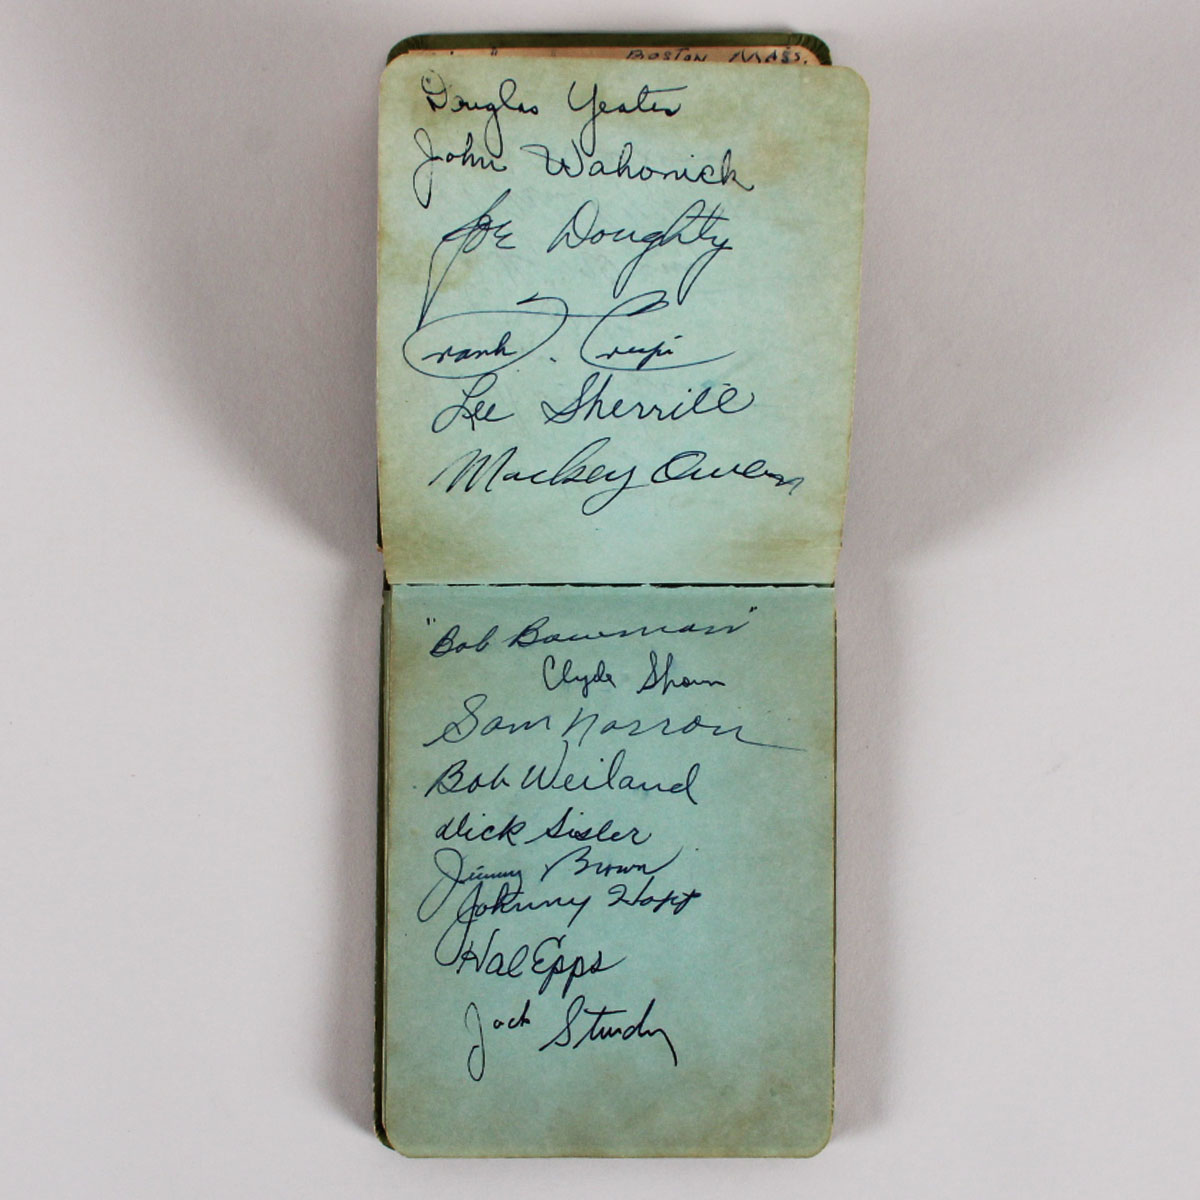 BOSTON MASS.
Douglas Yeates
John Wahonick
Joe Doughty
Frank. Crespi
Lee Sherrill
Mickey Owen
"Bob Bowman"
Clyde Shoun
Sam Narron
Bob Weiland
Dick Sisler
Jimmy Brown
Johnny Hopp
Hal Epps
Jack Sturdy